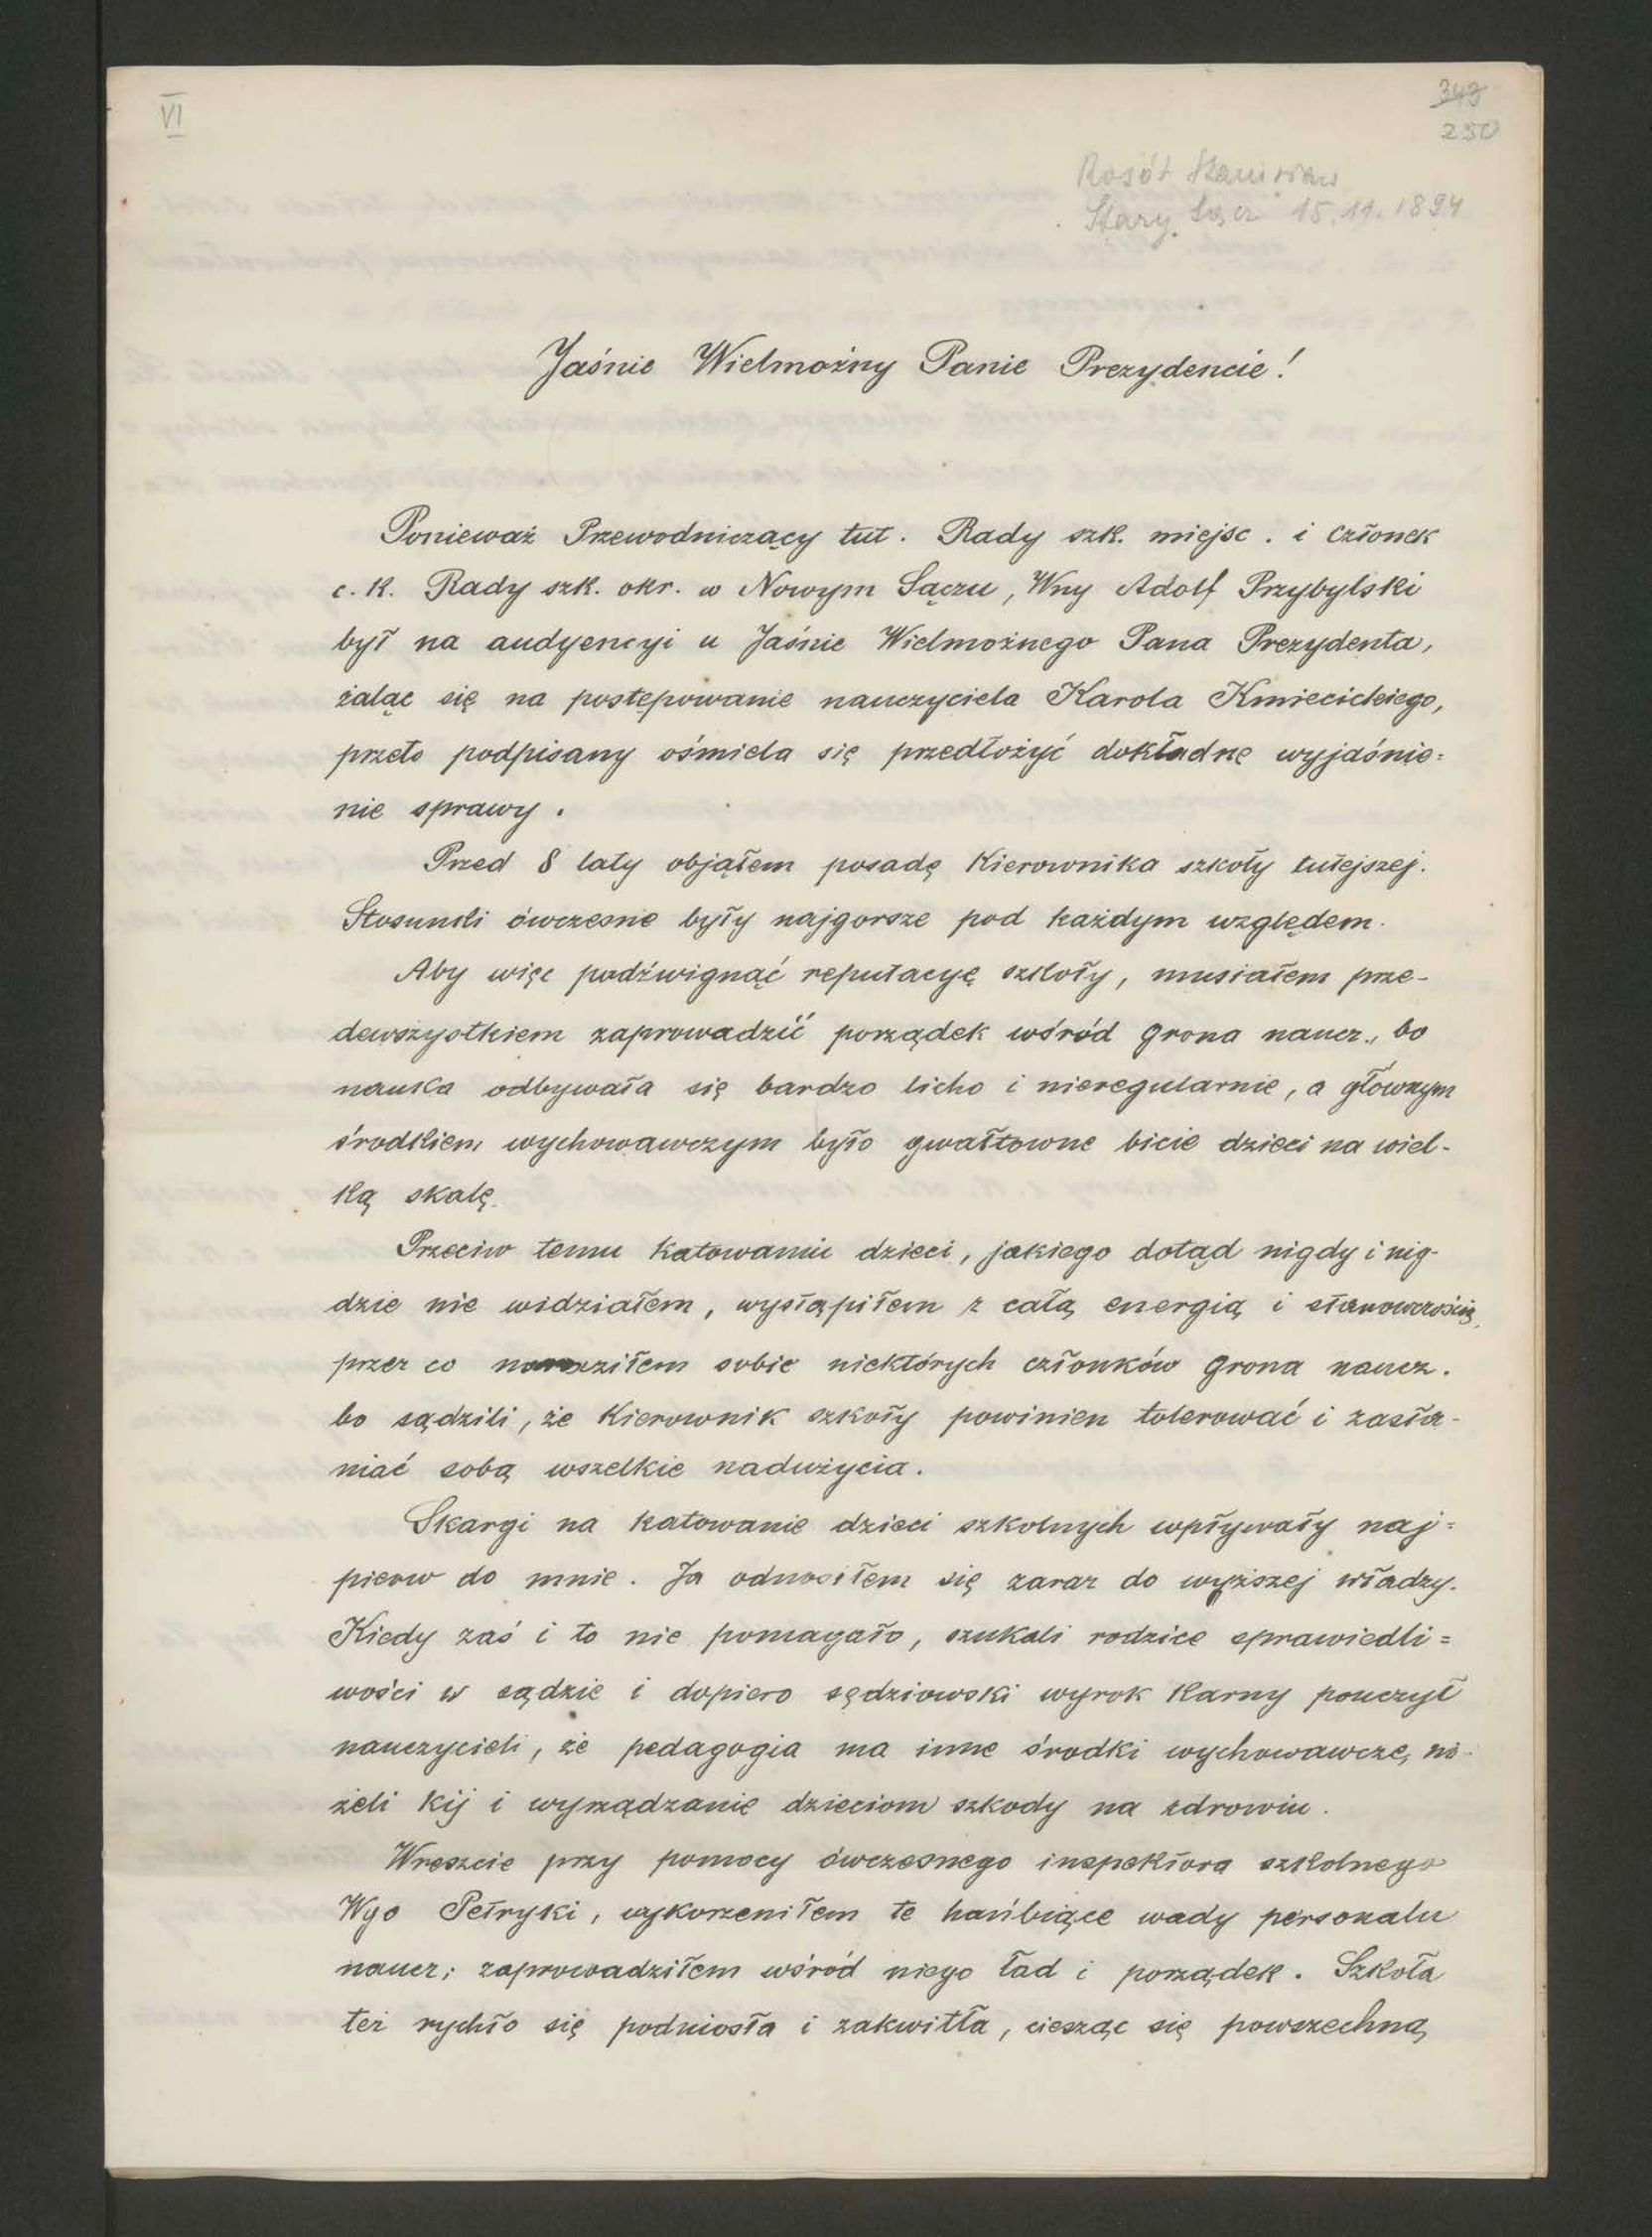 VI
343
250
Rosół Stanisław
Stary Sącz 15.11.1894
Jaśnie Wielmożny Panie Prezydencie!
Ponieważ Przewodniczący tut. Rady szk. miejsc. i członek
c. k. Rady szk. okr. w Nowym Sączu, Wny Adolf Przybylski
był na audyencyi u Jaśnie Wielmożnego Pana Prezydenta,
żaląc się na postępowanie nauczyciela Karola Kmiecickiego,
przeto podpisany ośmiela się przedłożyć dokładne wyjaśnie=
nie sprawy.
Przed 8 laty objąłem posadę kierownika szkoły tutejszej.
Stosunki ówczesne były najgorsze pod każdym względem.
Aby więc podźwignąć reputacyę szkoły, musiałem prze-
dewszystkiem zaprowadzić porządek wśród grona naucz., bo
nauka odbywała się bardzo licho i nieregularnie, a głównym
środkiem wychowawczym było gwałtowne bicie dzieci na wiel-
ką skalę.
Przeciw temu katowaniu dzieci, jakiego dotąd nigdy i nig-
dzie nie widziałem, wystąpiłem z całą energią i stanowczością,
przez co naraziłem sobie niektórych członków grona naucz.
bo sądzili, że kierownik szkoły powinien tolerować i zasła-
niać sobą wszelkie nadużycia.
Skargi na katowanie dzieci szkolnych wpływały naj=
pierw do mnie. Ja odnosiłem się zaraz do wyższej władzy.
Kiedy zaś i to nie pomagało, szukali rodzice sprawiedli=
wości w sądzie i dopiero sędziowski wyrok karny pouczył
nauczycieli, że pedagogia ma inne środki wychowawcze, ni-
żeli kij i wyrządzanie dzieciom szkody na zdrowiu.
Wreszcie przy pomocy ówczesnego inspektora szkolnego
Wgo Petryki, wykorzeniłem te hańbiące wady personalu
naucz; zaprowadziłem wśród niego ład i porządek. Szkoła
też rychło się podniosła i zakwitła, ciesząc się powszechną